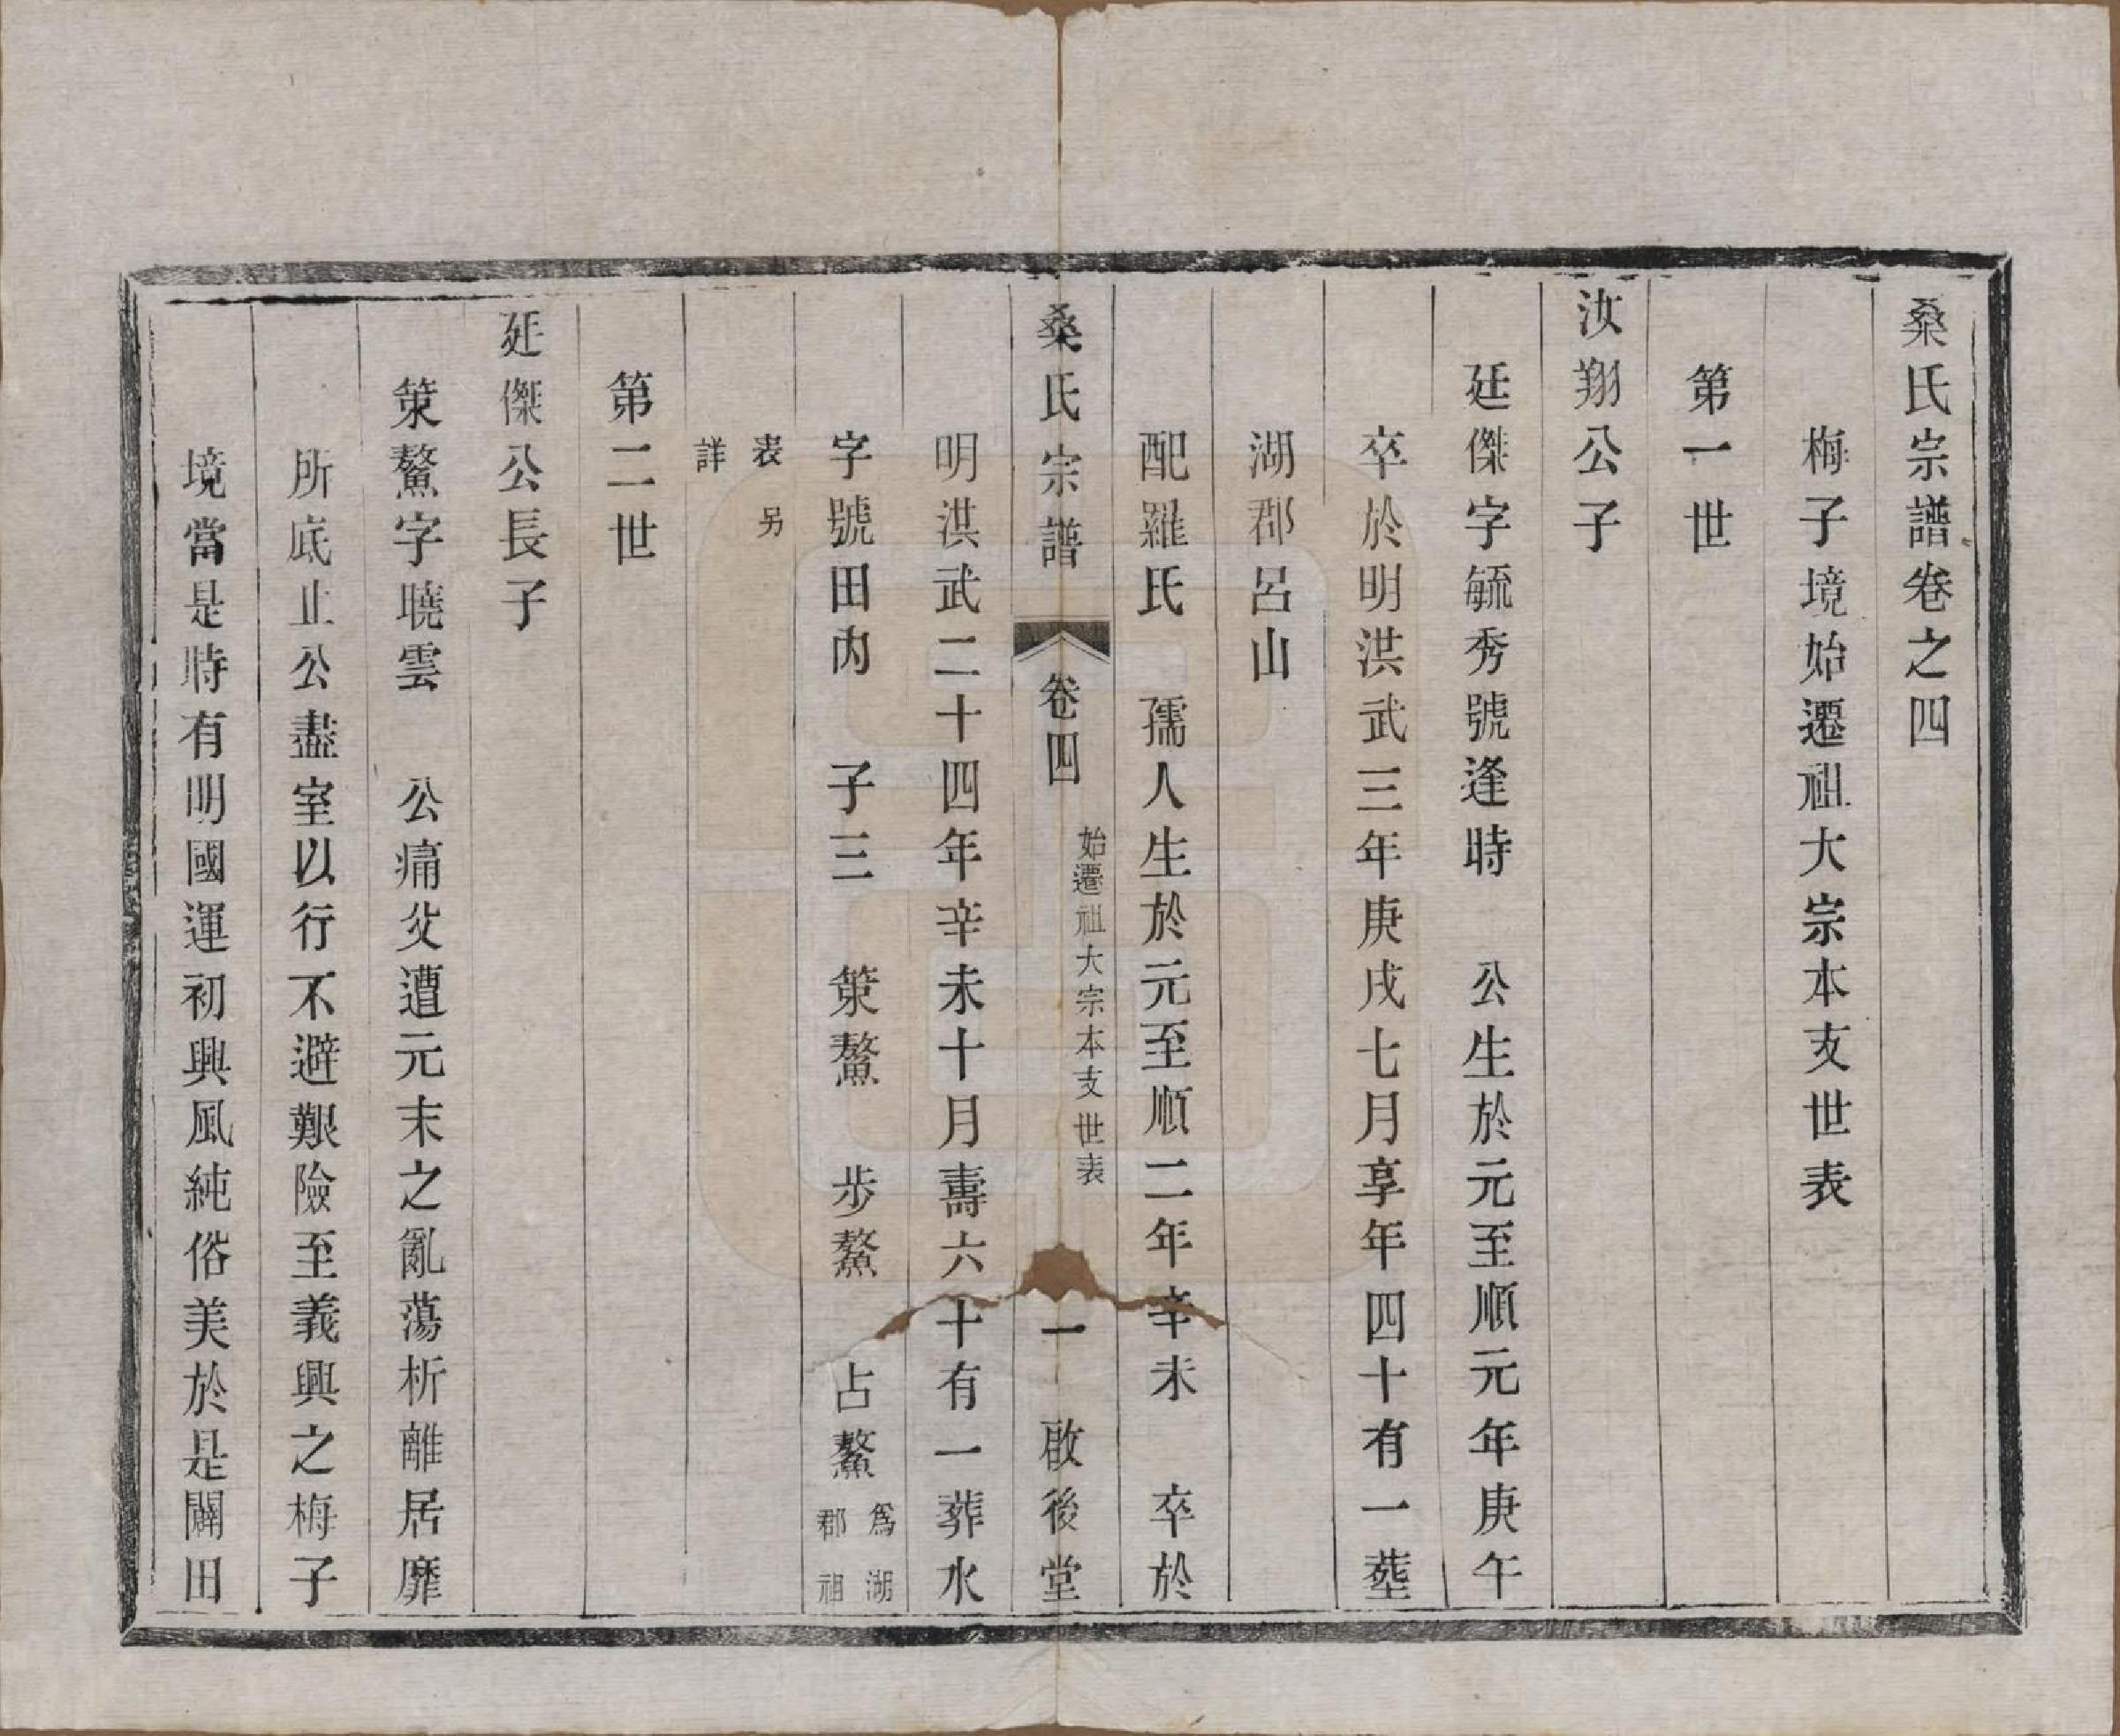 桑氏宗譜卷之四
梅子境始遷祖大宗本支世表
第一世
汝翔公子
廷傑字毓秀號逢時　公生於元至順元年庚午
卒於明洪武三年庚戌七月享年四十有一塟
湖郡呂山
配羅氏　孺人生於元至順二年辛未　卒於
桑氏宗譜　卷四　始遷祖大宗本支世表　一　啟後堂
明洪武二十四年辛未十月壽六十有一葬水
字號田內　子三　策鰲　步鰲　占鰲　爲湖郡祖
表另詳
第二世
廷傑公長子
策鰲字曉雲　公痛父遭元末之亂蕩析離居靡
所底止公盡室以行不避艱險至義興之梅子
境當是時有明國運初興風純俗美於是闢田